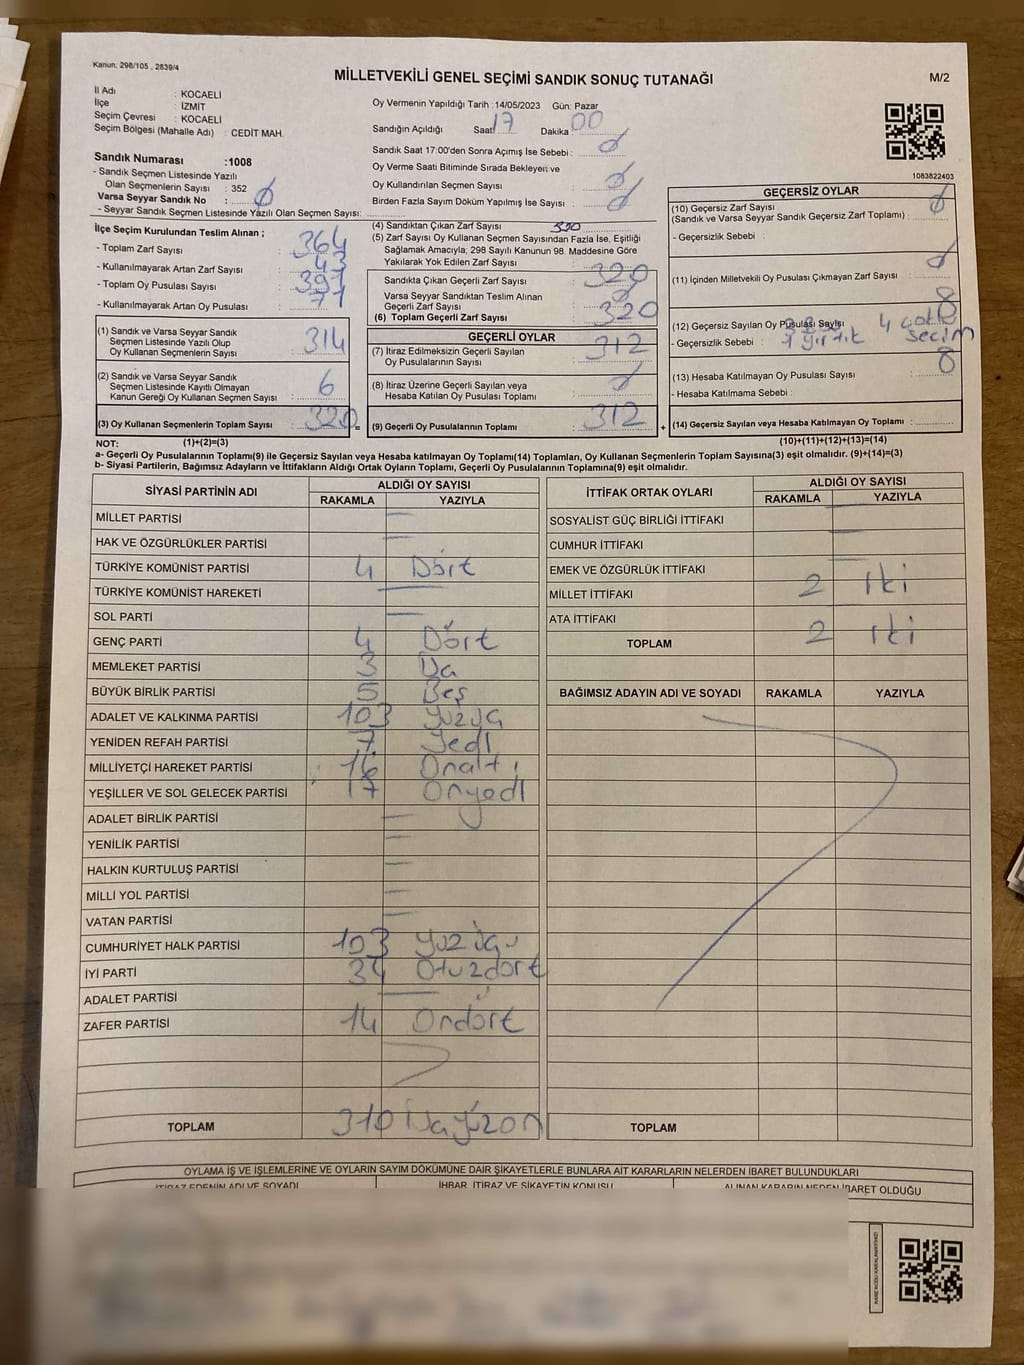 Kanun: 298/105 , 2839/4
MİLLETVEKİLİ GENEL SEÇİMİ SANDIK SONUÇ TUTANAĞI
M/2
İl Adı : KOCAELİ
İlçe : İZMİT
Seçim Çevresi : KOCAELİ
Seçim Bölgesi (Mahalle Adı) : CEDİT MAH.
Sandık Numarası :1008
- Sandık Seçmen Listesinde Yazılı
Olan Seçmenlerin Sayısı : 352
Varsa Seyyar Sandık No : Ø
- Seyyar Sandık Seçmen Listesinde Yazılı Olan Seçmen Sayısı:
Oy Vermenin Yapıldığı Tarih :14/05/2023 Gün: Pazar
Sandığın Açıldığı Saat: 17 Dakika : 00
Sandık Saat 17:00'den Sonra Açımış İse Sebebi : Ø
Oy Verme Saati Bitiminde Sırada Bekleyen ve
Oy Kullandırılan Seçmen Sayısı : Ø
Birden Fazla Sayım Döküm Yapılmış İse Sayısı : Ø
1083822403
İlçe Seçim Kurulundan Teslim Alınan ;
- Toplam Zarf Sayısı : 364
- Kullanılmayarak Artan Zarf Sayısı : 43
- Toplam Oy Pusulası Sayısı : 391
- Kullanılmayarak Artan Oy Pusulası : 71
(1) Sandık ve Varsa Seyyar Sandık
Seçmen Listesinde Yazılı Olup
Oy Kullanan Seçmenlerin Sayısı : 314
(2) Sandık ve Varsa Seyyar Sandık
Seçmen Listesinde Kayıtlı Olmayan
Kanun Gereği Oy Kullanan Seçmen Sayısı : 6
(3) Oy Kullanan Seçmenlerin Toplam Sayısı : 320 =
(4) Sandıktan Çıkan Zarf Sayısı : 320
(5) Zarf Sayısı Oy Kullanan Seçmen Sayısından Fazla İse, Eşitliği
Sağlamak Amacıyla; 298 Sayılı Kanunun 98. Maddesine Göre
Yakılarak Yok Edilen Zarf Sayısı :
Sandıkta Çıkan Geçerli Zarf Sayısı : 320
Varsa Seyyar Sandıktan Teslim Alınan
Geçerli Zarf Sayısı : Ø
(6) Toplam Geçerli Zarf Sayısı : 320
GEÇERLİ OYLAR
(7) İtiraz Edilmeksizin Geçerli Sayılan
Oy Pusulalarının Sayısı : 312
(8) İtiraz Üzerine Geçerli Sayılan veya
Hesaba Katılan Oy Pusulası Toplamı : Ø
(9) Geçerli Oy Pusulalarının Toplamı : 312 +
GEÇERSİZ OYLAR
(10) Geçersiz Zarf Sayısı
(Sandık ve Varsa Seyyar Sandık Geçersiz Zarf Toplamı) : Ø
- Geçersizlik Sebebi :
(11) İçinden Milletvekili Oy Pusulası Çıkmayan Zarf Sayısı : Ø
(12) Geçersiz Sayılan Oy Pusulası Sayısı : 8
- Geçersizlik Sebebi : yırtık 4 çoklu seçim
(13) Hesaba Katılmayan Oy Pusulası Sayısı : 8
- Hesaba Katılmama Sebebi :
(14) Geçersiz Sayılan veya Hesaba Katılmayan Oy Pusulası Toplamı :
NOT: (1)+(2)=(3)
(10)+(11)+(12)+(13)=(14)
a- Geçerli Oy Pusulalarının Toplamı(9) ile Geçersiz Sayılan veya Hesaba katılmayan Oy Toplamı(14) Toplamları, Oy Kullanan Seçmenlerin Toplam Sayısına(3) eşit olmalıdır. (9)+(14)=(3)
b- Siyasi Partilerin, Bağımsız Adayların ve İttifakların Aldığı Ortak Oyların Toplamı, Geçerli Oy Pusulalarının Toplamına(9) eşit olmalıdır.
SİYASİ PARTİNİN ADI ALDIĞI OY SAYISI
RAKAMLA YAZIYLA
MİLLET PARTİSİ —
HAK VE ÖZGÜRLÜKLER PARTİSİ —
TÜRKİYE KOMÜNİST PARTİSİ 4 Dört
TÜRKİYE KOMÜNİST HAREKETİ —
SOL PARTİ —
GENÇ PARTİ 4 Dört
MEMLEKET PARTİSİ 3 Üç
BÜYÜK BİRLİK PARTİSİ 5 Beş
ADALET VE KALKINMA PARTİSİ 103 Yüzüç
YENİDEN REFAH PARTİSİ 7 Yedi
MİLLİYETÇİ HAREKET PARTİSİ 16 Onaltı
YEŞİLLER VE SOL GELECEK PARTİSİ 17 Onyedi
ADALET BİRLİK PARTİSİ —
YENİLİK PARTİSİ —
HALKIN KURTULUŞ PARTİSİ —
MİLLİ YOL PARTİSİ —
VATAN PARTİSİ —
CUMHURİYET HALK PARTİSİ 103 Yüzüç
İYİ PARTİ 34 Otuzdört
ADALET PARTİSİ —
ZAFER PARTİSİ 14 Ondört
TOPLAM 310 Üçyüzon
İTTİFAK ORTAK OYLARI ALDIĞI OY SAYISI
RAKAMLA YAZIYLA
SOSYALİST GÜÇ BİRLİĞİ İTTİFAKI —
CUMHUR İTTİFAKI —
EMEK VE ÖZGÜRLÜK İTTİFAKI —
MİLLET İTTİFAKI 2 İki
ATA İTTİFAKI
TOPLAM 2 İki
BAĞIMSIZ ADAYIN ADI VE SOYADI RAKAMLA YAZIYLA
TOPLAM
OYLAMA İŞ VE İŞLEMLERİNE VE OYLARIN SAYIM DÖKÜMÜNE DAİR ŞİKAYETLERLE BUNLARA AİT KARARLARIN NELERDEN İBARET BULUNDUKLARI
İTİRAZ EDENİN ADI VE SOYADI İHBAR, İTİRAZ VE ŞİKAYETİN KONUSU ALINAN KARARIN NEDEN İBARET OLDUĞU